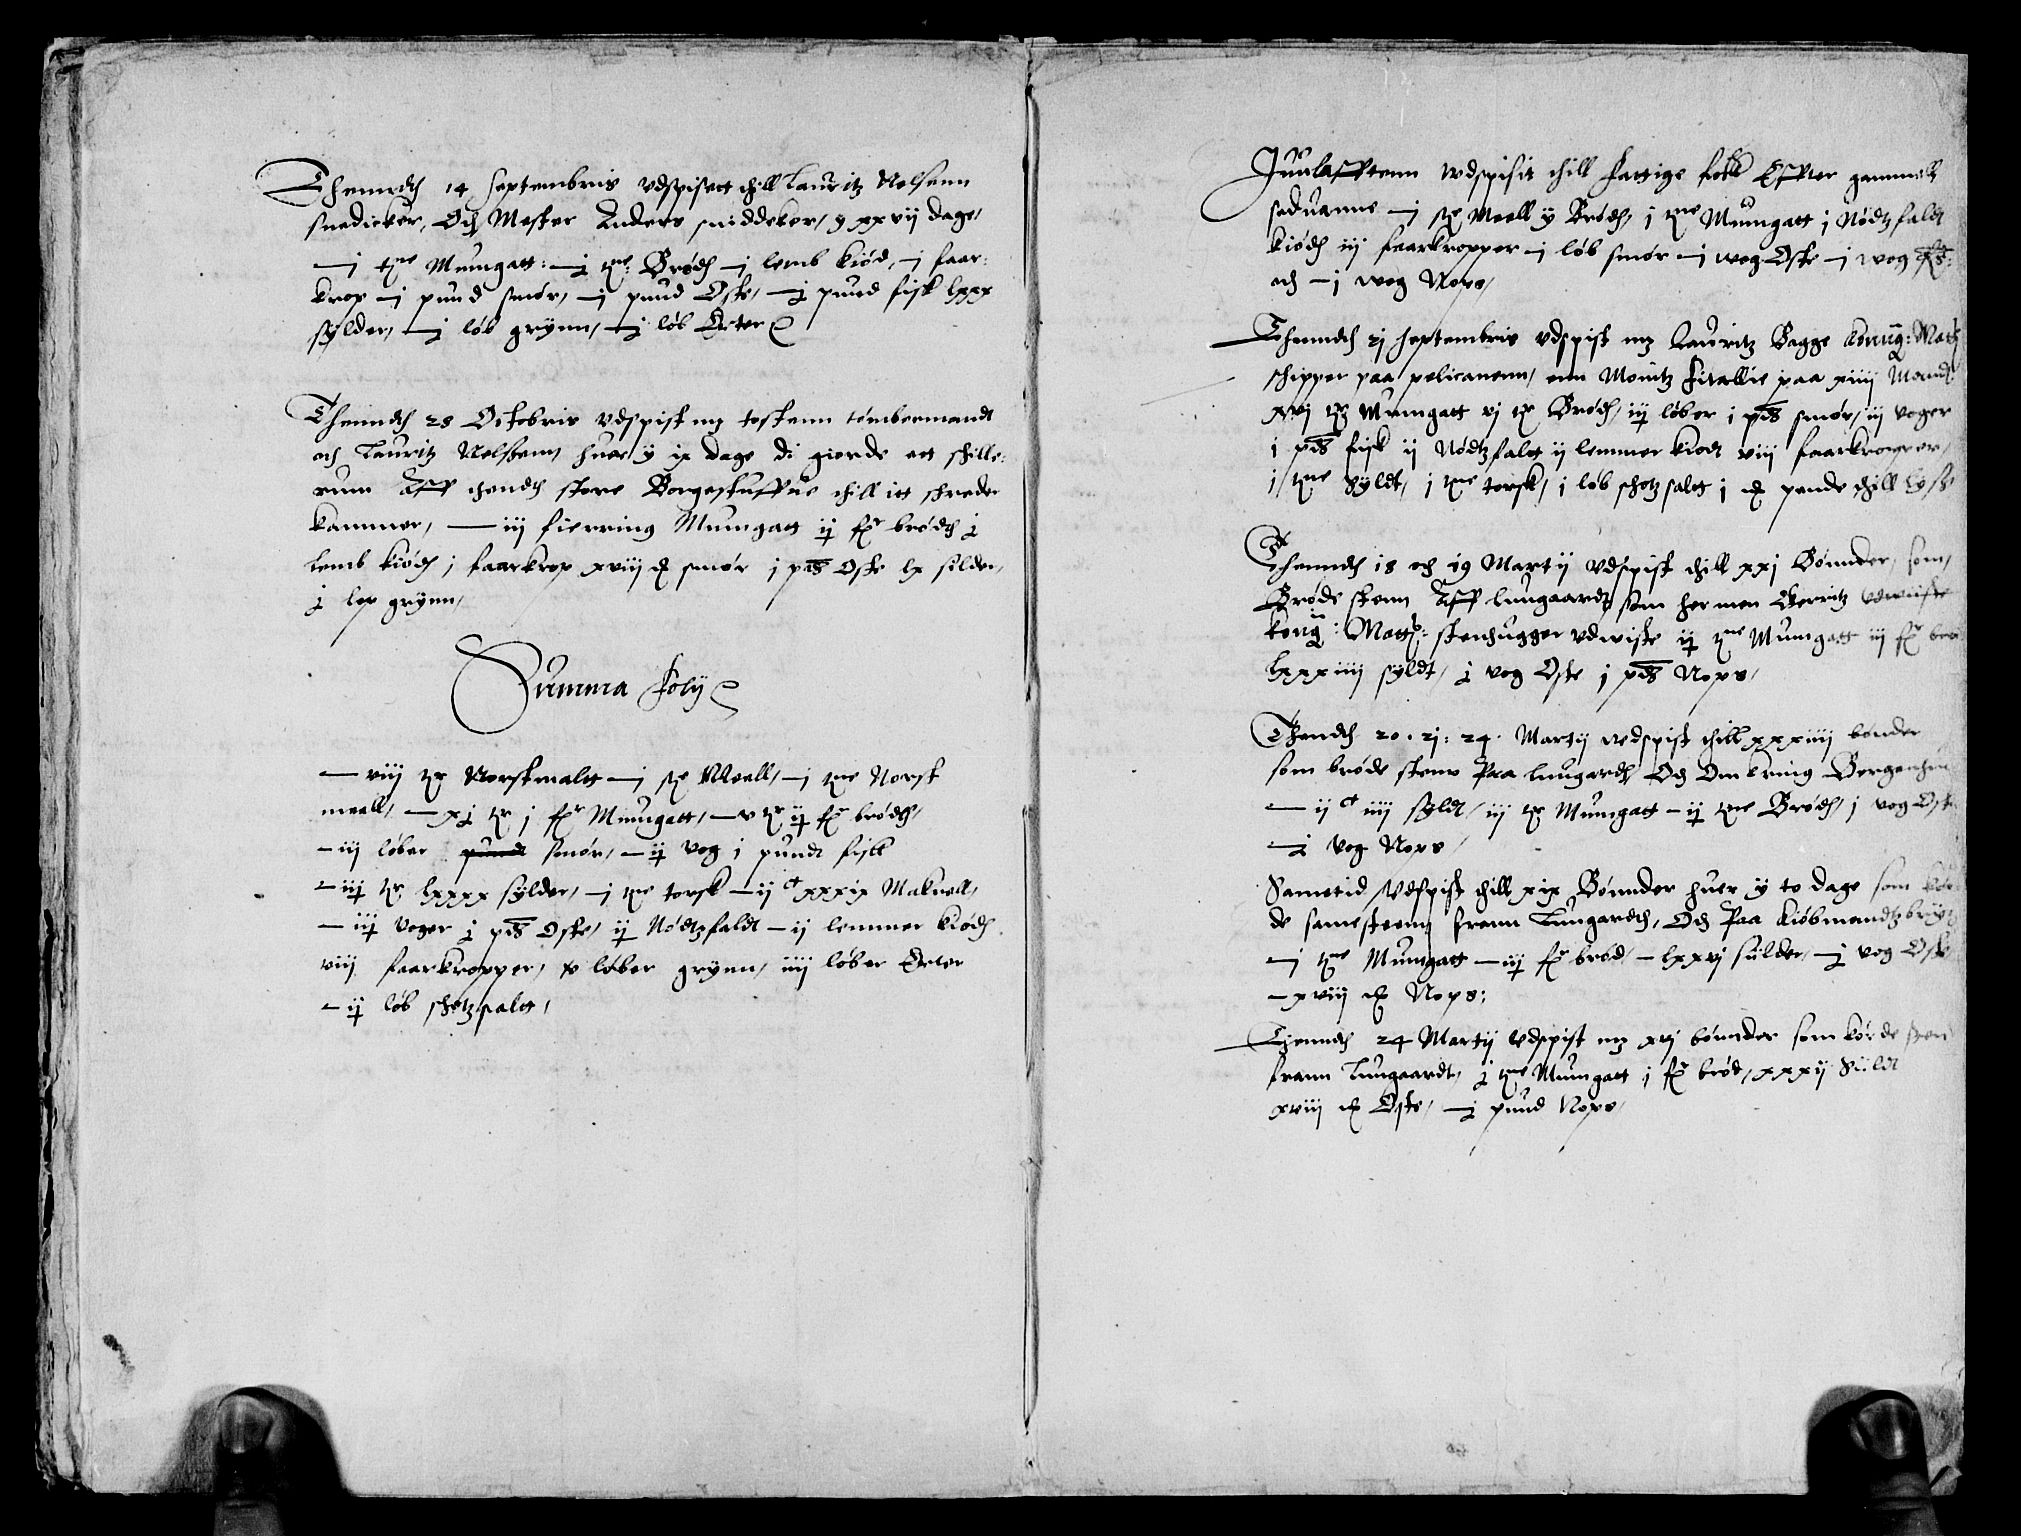 Thenndh 14 Septembris vdspisett thill Lauritz Nelsenn
snedicker, Och Mester Anders sniddeker, y xxvij dage,
– j tne Mumgatt: – j tne: Brødh – j lemb kiød, – j faar:
krop – j pund smør, – j pund Oste, – j pund fisk lxxx
sylder, – j løb grynn, – j løb Erter
Thenndh 28 Octobris vdspist mz tostenn tømbermandt
och Lauritz Nelssenn, huer y ix dage di giorde ett schille:
rum Aff thendh store Borgestuffue thill itt schreder
kammer, – iij fierring Mumgatt ij fr brødh j
lemb kiødh j faarkrop xviij m smør j pd Oste lx silder,
j lop grynn,
Summa Folij
– viij tr Norskmaltt – j se Meell, – j tne Norsk
meell, – xj tr j fr Mumgatt, – v tr ij fr brødh,
– iij løber pundt smør, – ij vog j pundt fisk
– iij tr lxxxx sylder, – j tne torsk – ij c xxxix Makrell,
– iij voger j pd Oste, ij Nødtzfaldt – ij lemmer kiødh
viij faarkropper, x løber grynn, iiij løber Erter
– ij løb schotzsaltt,
Juulafftenn wdspisit thill fattige folk Effter gammell
seduanne – j se Meell y Brødh, j tne Mumgatt j Nødtzfaldt
kiødh iij faarkropper – j løb smør – j wog Oste – j wog
och – j wog Nops,
Thenndh 21 Septembris vdspist mz Lauritz Bagge konng: Matts
schipper paa pelicanenn, enn Monitz fitallie paa xiiij Mandt
xvj tr Mumgatt vj tr Brødh, iij løber j pd smør, iij voger
j pd fisk ij Nødtzfalt ij lemmer kiødt viij faarkropper,
j tne Syldt, j tne torsk, j løb schotzsaltt j m pende thill lyse
Thenndh 18 och 19 Martij vdspist thill xxj Bønnder, som,
Brøde stenn Aff lungaardt som hermen Gerritz vdwiiste
konng: Matts: stenhugger vdwiste ij tne Mumgatt iij fr brød
lxxxiiij syldt, j vog Oste j pd Nops,
Thendh 20. 21: 24. Martij wdspist thill xxxiiij bønder
som brøde stenn Paa lungardh Och Omkring Bergenhus
– ij c iiij syldt, iij tr Mumgatt – ij tne Brødh, j vog Oste
– j vog Nops,
Sametid vdspist thill xix Bønnder huer y to dage som kør
de samestenn frann Lungardh, Och Paa kiøbmandtzbryg
– j tne Mumgatt – iij fr brød, – lxxvj silder, – j vog Oste
– xviij m Nops;
Thenndh 24 Martij vdspist mz xvj bønnder som kørde sten
frann Lungaardt, j tne Mumgatt j fr brød, xxxij Sildt
xviij m Oste, – j pund Nops,